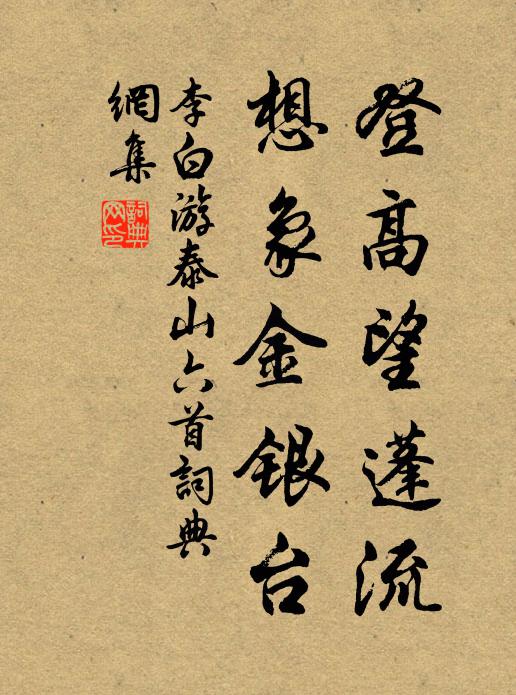 登高望蓬流
想象金銀台
李白游泰山六首詞典
網集
詞典
网印